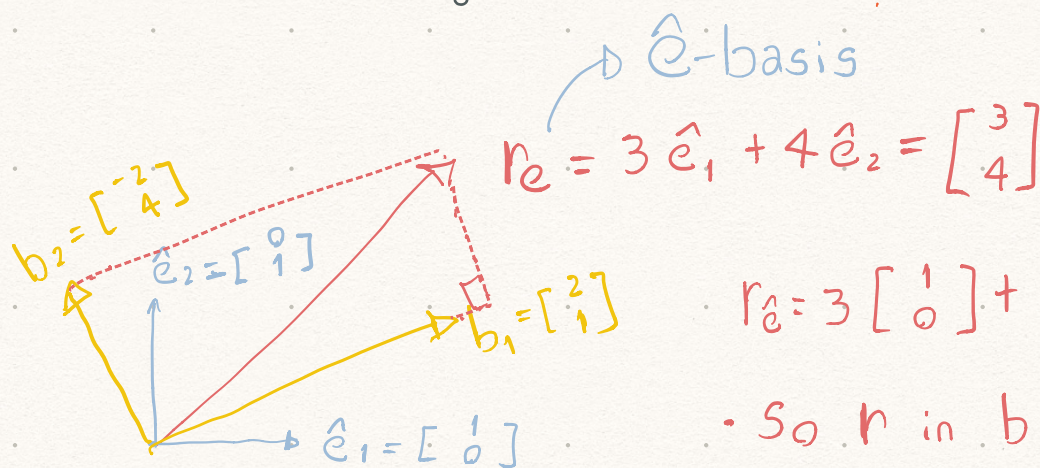 ê-basis
rₑ = 3 ê₁ + 4 ê₂ = [3 4]
b₂ = [-2 4]
ê₂ = [0 1]
b₁ = [2 1]
r_ê = 3 [1 0] +
ê₁ = [1 0]
· So r in b